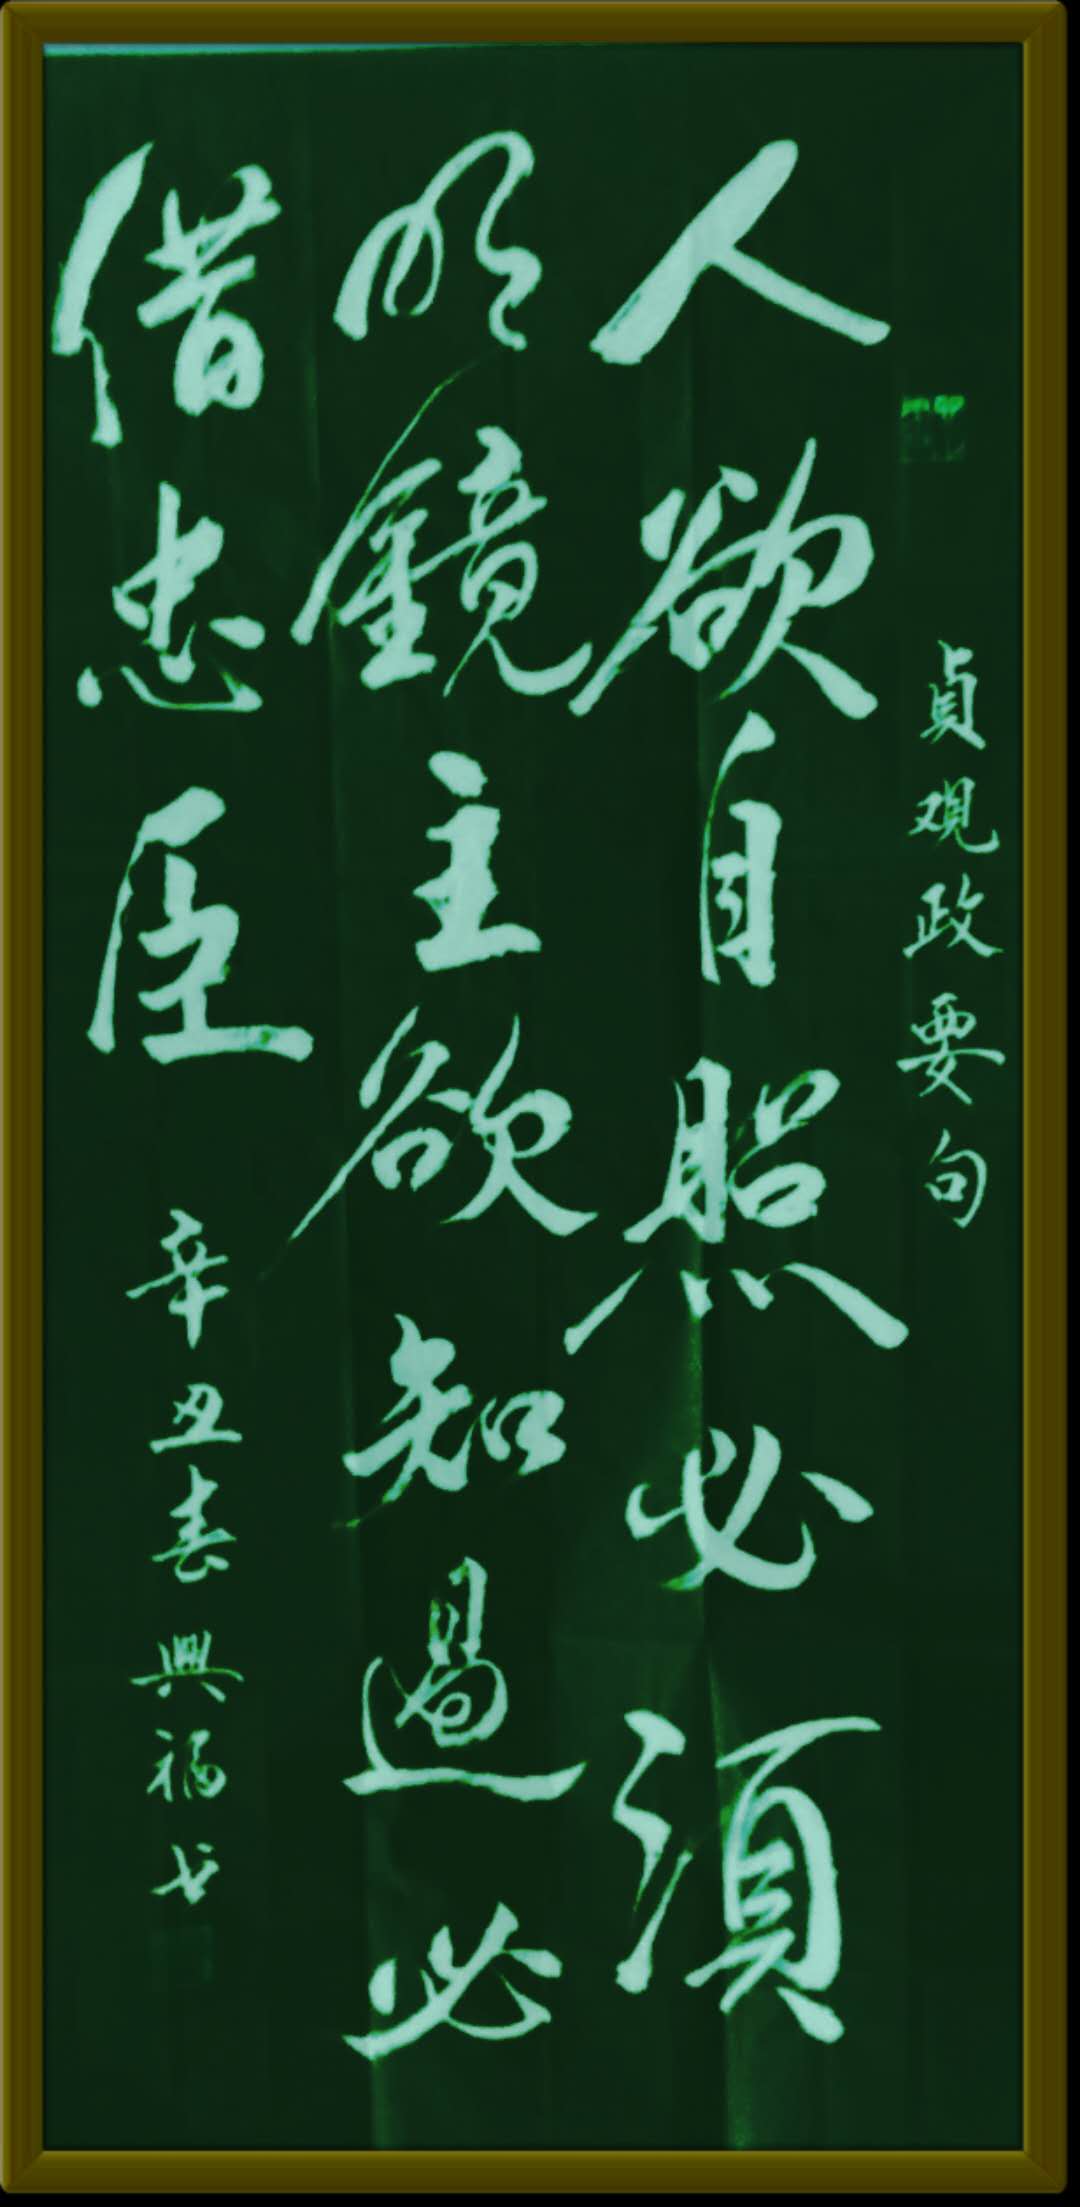 貞观政要句
人欲自照必須
明鏡主欲知過必
借忠臣
辛丑春興福书